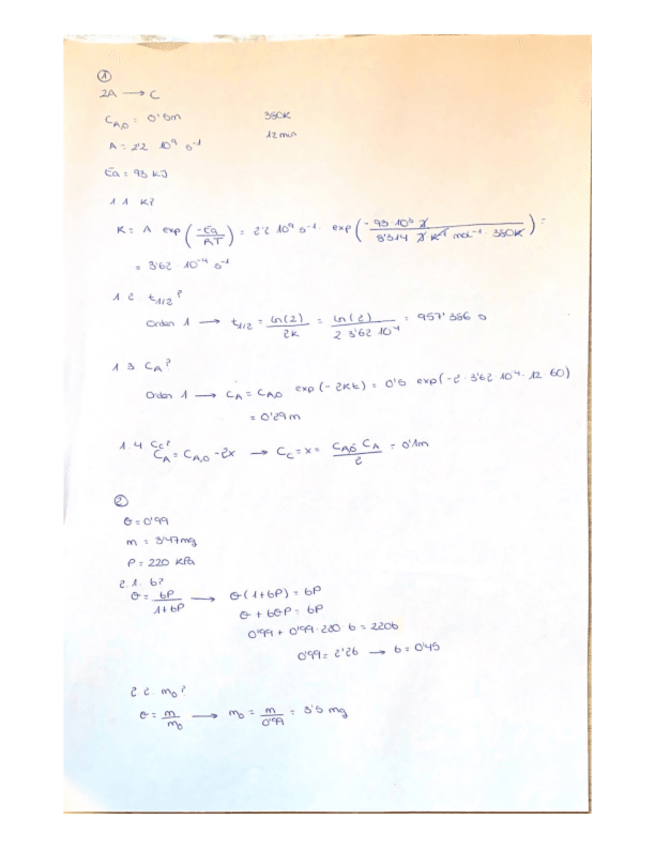 ①
2A → C
C_A,0 = 0'5m 380K
12min
A = 2'2 10⁹ s⁻¹
Ea = 93 kJ
1 1 K?
K = A exp(-Ea/RT) = 2'2 10⁹ s⁻¹ · exp(-93 10³ J / 8'314 J K⁻¹ mol⁻¹ · 380K) =
= 3'62 · 10⁻⁴ s⁻¹
1 2. t1/2?
Orden 1 → t1/2 = ln(2)/2K = ln(2)/2·3'62·10⁻⁴ = 957'386 s
1 3 C_A?
Orden 1 → C_A = C_A,0 exp(-2Kt) = 0'5 exp(-2·3'62 10⁻⁴·12·60)
= 0'29m
1.4. Cc?
C_A = C_A,0 - 2x → Cc = x = C_A,0 - C_A / 2 = 0'1m
②
θ = 0'99
m = 3'47mg
P = 220 kPa
2.1. b?
θ = bP/1+bP → θ(1+bP) = bP
θ + bθP = bP
0'99 + 0'99·220 b = 220b
0'99 = 2'2b → b = 0'45
2 2. m₀?
θ = m/m₀ → m₀ = m/0'99 = 3'5 mg